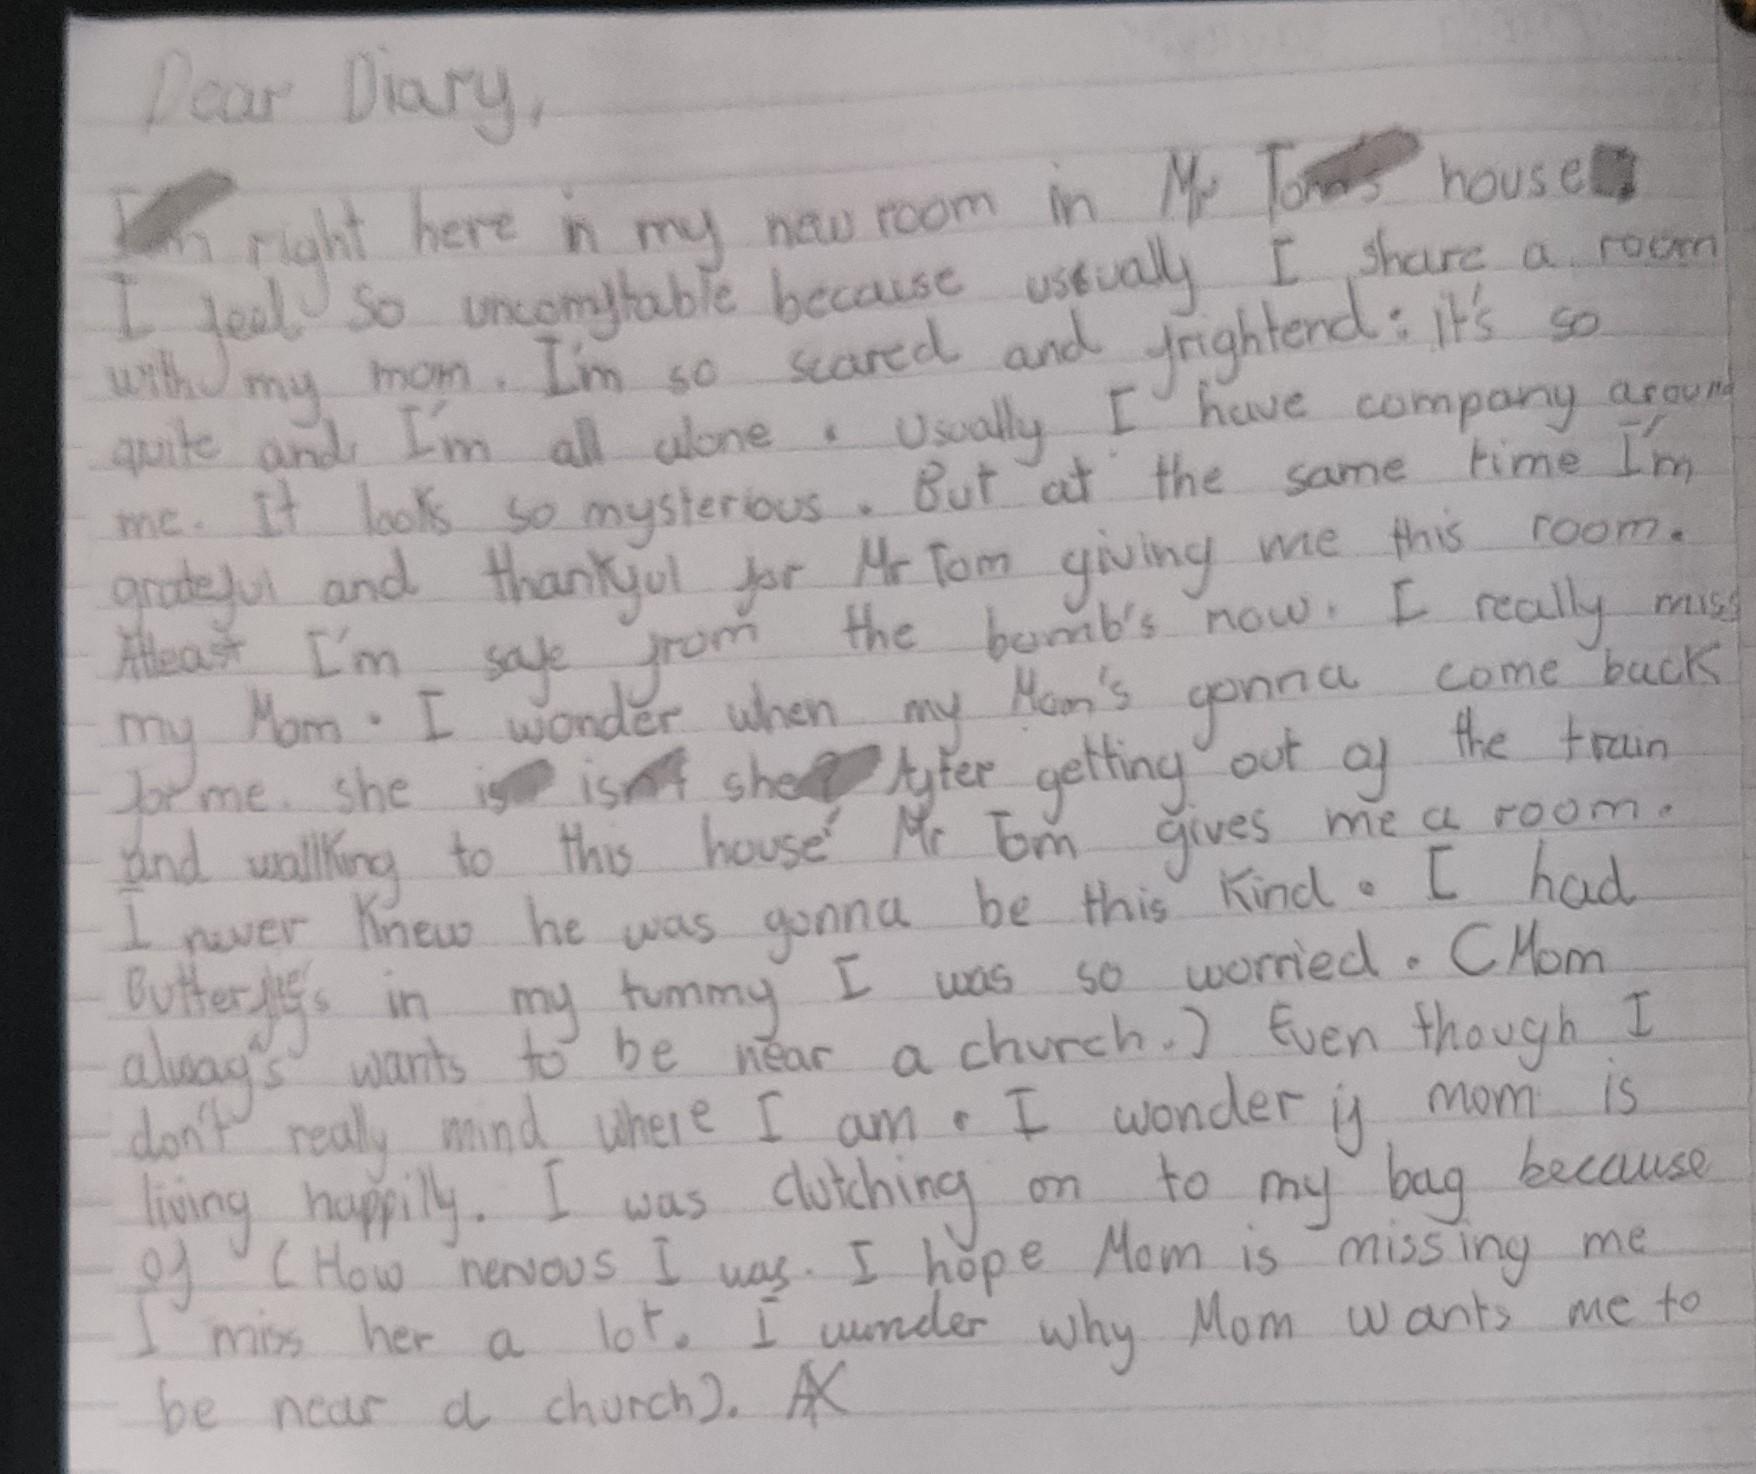 Dear Diary,
right here in my new room in Mr house
I feel so uncomftable because ususally I share a room
with my mom. I'm so scared and frightend: it's so
quite and I'm all alone. Usually I have company around
me. It looks so mysterious. But at the same time I'm
grateful and thankful for Mr Tom giving me this room.
Atleast I'm safe from the bomb's now. I really miss
my Mom. I wonder when my Mom's gonna come back
for me. she is isn't she After getting out of the train
and wallking to this house Mr Tom gives me a room.
I never knew he was gonna be this kind. I had
in my tummy I was so worried. (Mom
always wants to be near a church.) Even though I
don't really mind where I am. I wonder if mom is
living happilly. I was clutching on to my bag because
of (How nervous I was. I hope Mom is missing me
I miss her a lot. I wunder why Mom wants me to
be near a church).